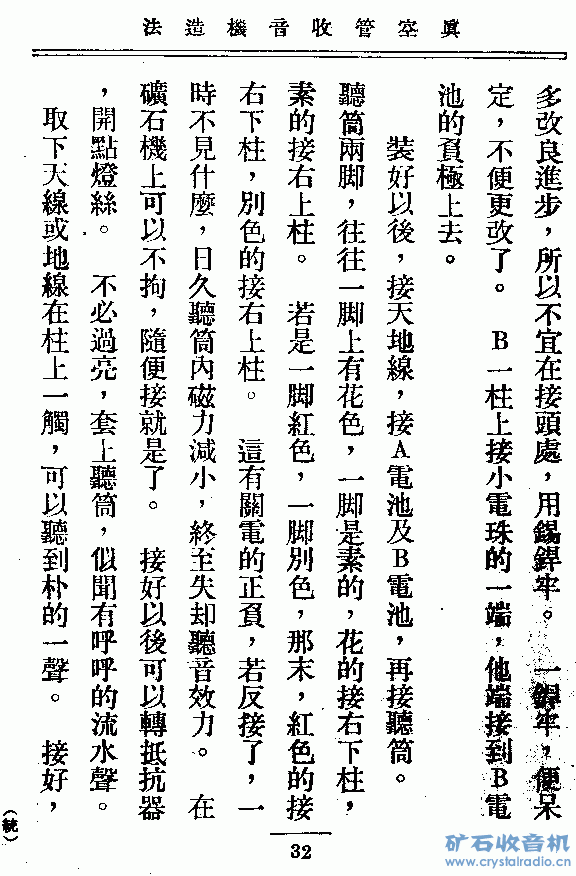 眞空管收音機造法
多改良進步，所以不宜在接頭處，用錫銲牢。　一銲牢，便呆
定，不便更改了。　B一柱上接小電珠的一端，他端接到B電
池的負極上去。
裝好以後，接天地線，接A電池及B電池，再接聽筒。
聽筒兩脚，往往一脚上有花色，一脚是素的，花的接右下柱，
素的接右上柱。　若是一脚紅色，一脚別色，那末，紅色的接
右下柱，別色的接右上柱。　這有關電的正負，若反接了，一
時不見什麼，日久聽筒內磁力減小，終至失却聽音效力。　在
礦石機上可以不拘，隨便接就是了。　接好以後可以轉抵抗器
，開點燈絲。　不必過亮，套上聽筒，似聞有呼呼的流水聲。
取下天線或地線在柱上一觸，可以聽到朴的一聲。　接好，
（統）
32
矿石收音机
www.crystalradio.cn